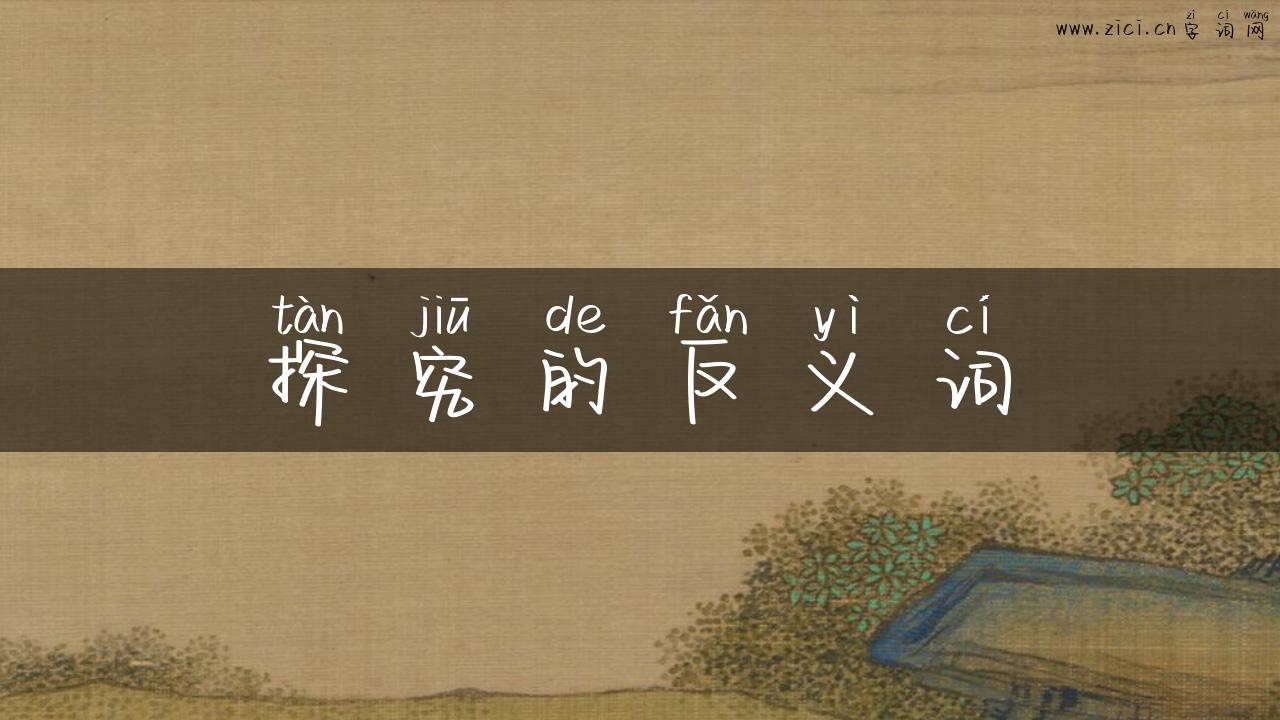 zì cí wǎng
www.zici.cn 字词网
tàn jiū de fǎn yì cí
探究的反义词